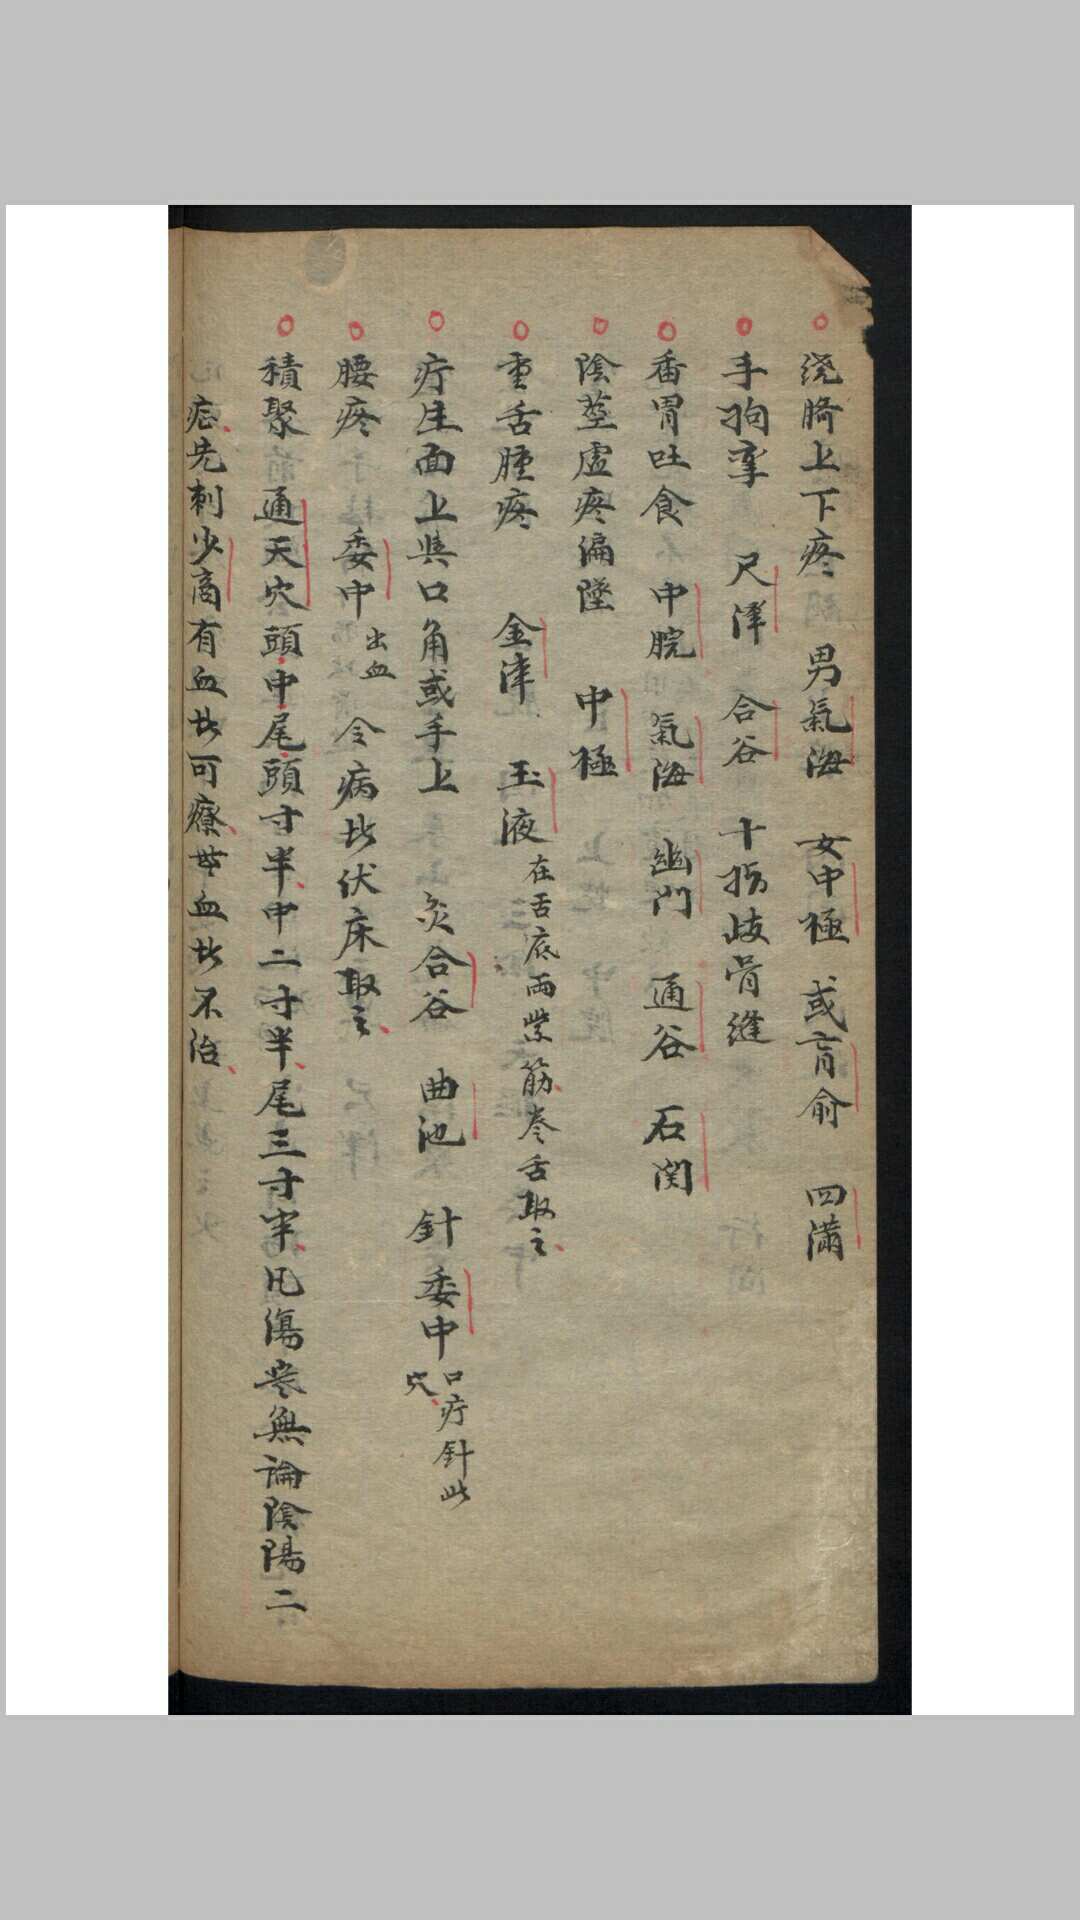 ○繞臍上下疼 男氣海 女中極 或肓俞 四滿
○手拘挛 尺澤 合谷 十指歧骨縫
○番胃吐食 中脘 氣海 幽門 通谷 石関
○陰莖虛疼偏墜 中極
○重舌腫疼 金津 玉液 在舌底兩紫筋卷舌取之
○疔生面上與口角或手上 灸合谷 曲池 針委中 口疔針此穴
○腰疼 委中 出血 令病者伏床取之
○積聚 通天穴頭中尾頭寸半中二寸半尾三寸半凡傷寒無論陰陽二
症先刺少商有血者可療無血者不治